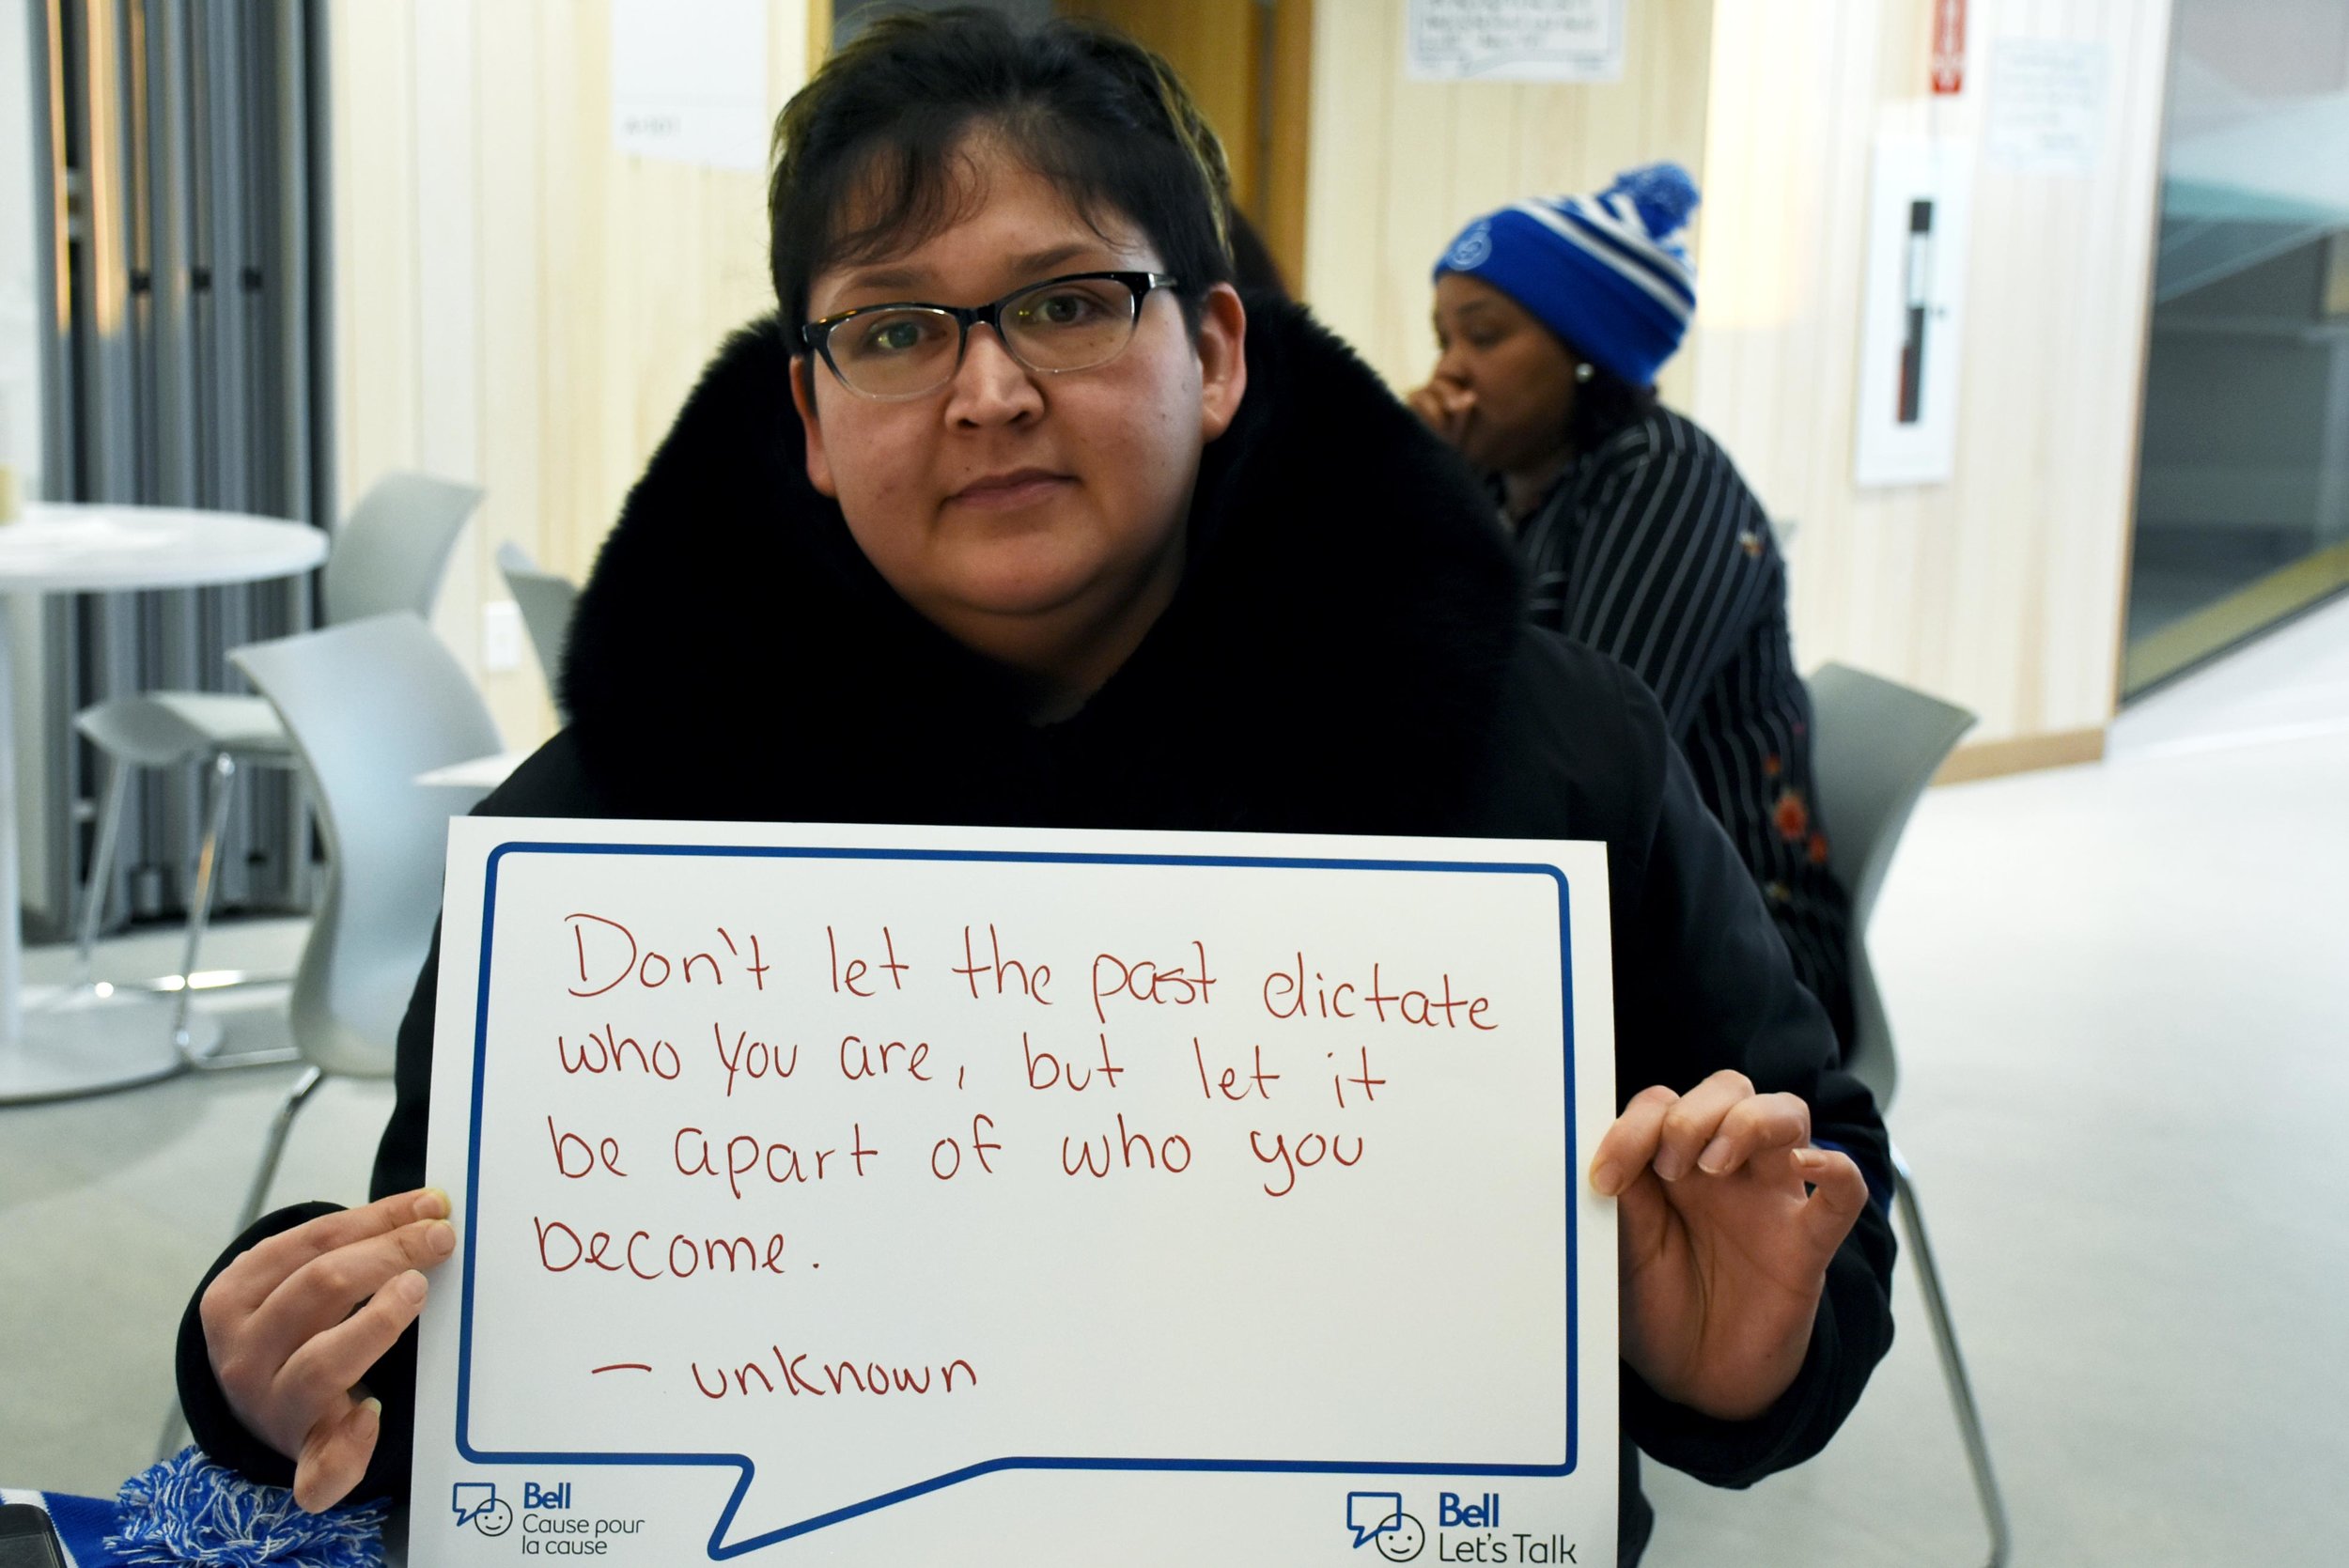 Don't let the past dictate
who you are, but let it
be apart of who you
become.
- unknown
Bell
Cause pour
la cause
Bell
Let's Talk